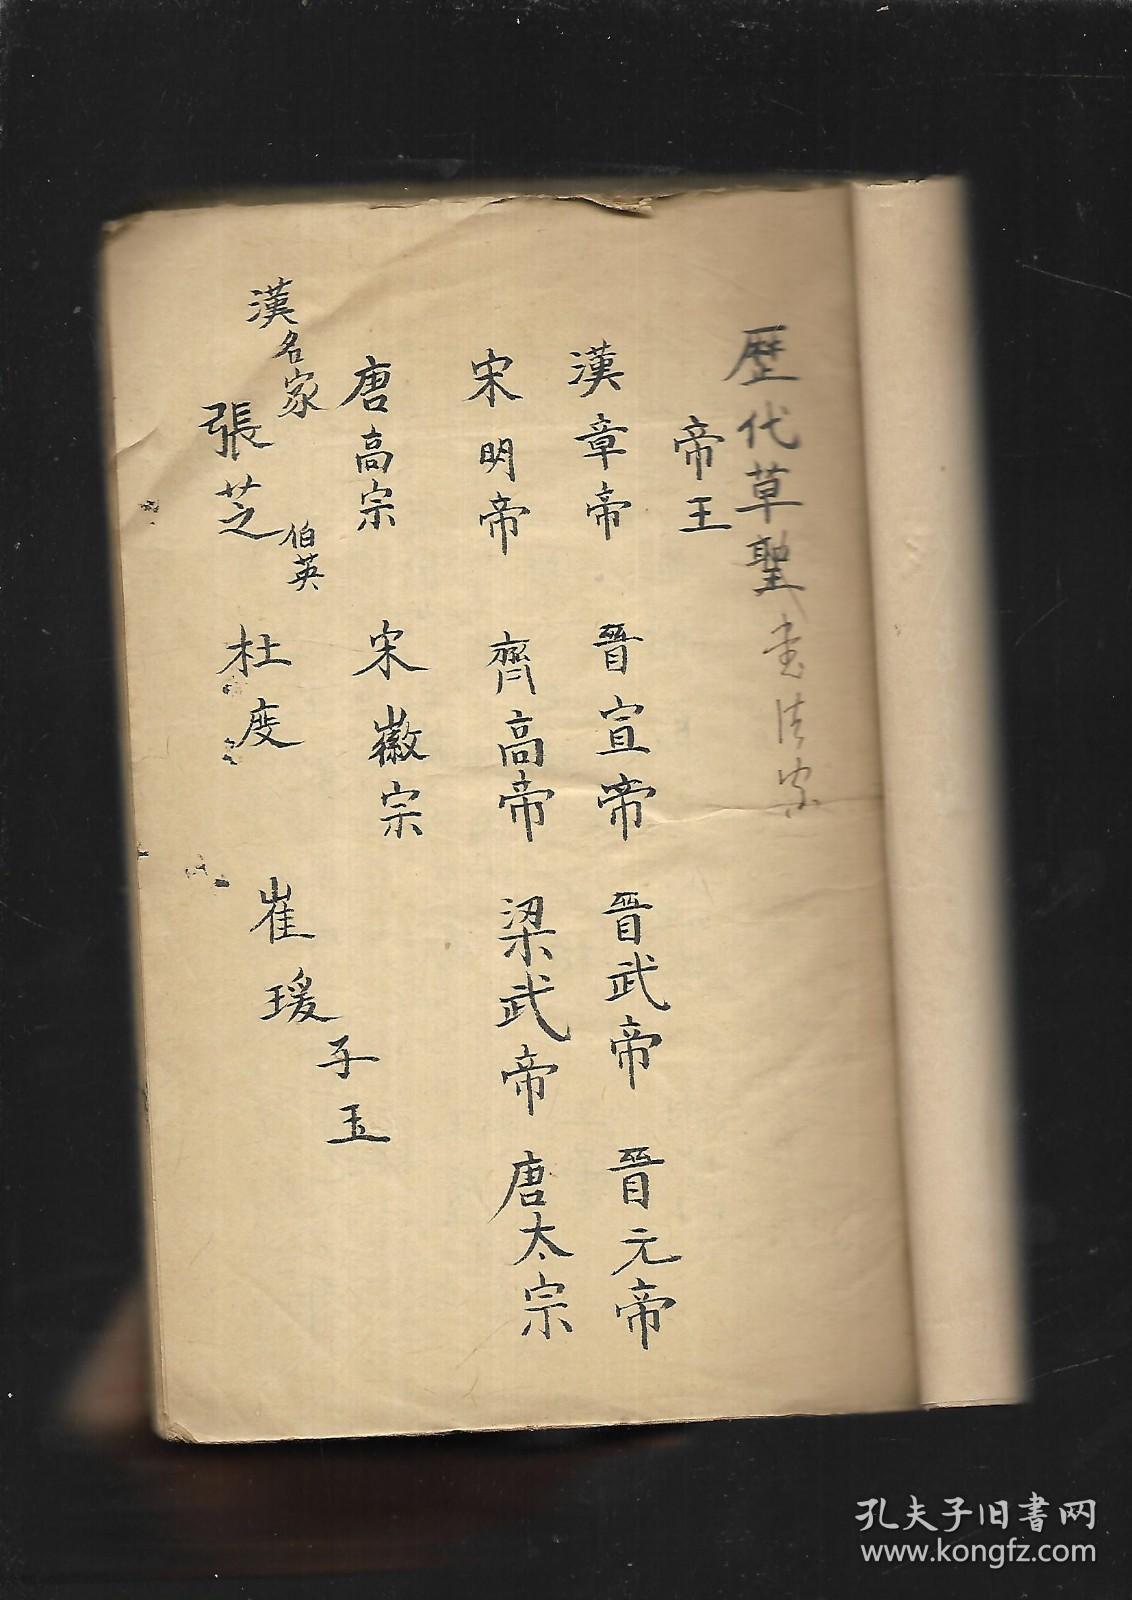 歷代草聖書法家
帝王
漢章帝 晉宣帝 晉武帝 晉元帝
宋明帝 齊高帝 梁武帝 唐太宗
唐高宗 宋徽宗
漢名家
張芝 伯英 杜度 崔瑗 子玉
孔夫子旧書网
www.kongfz.com